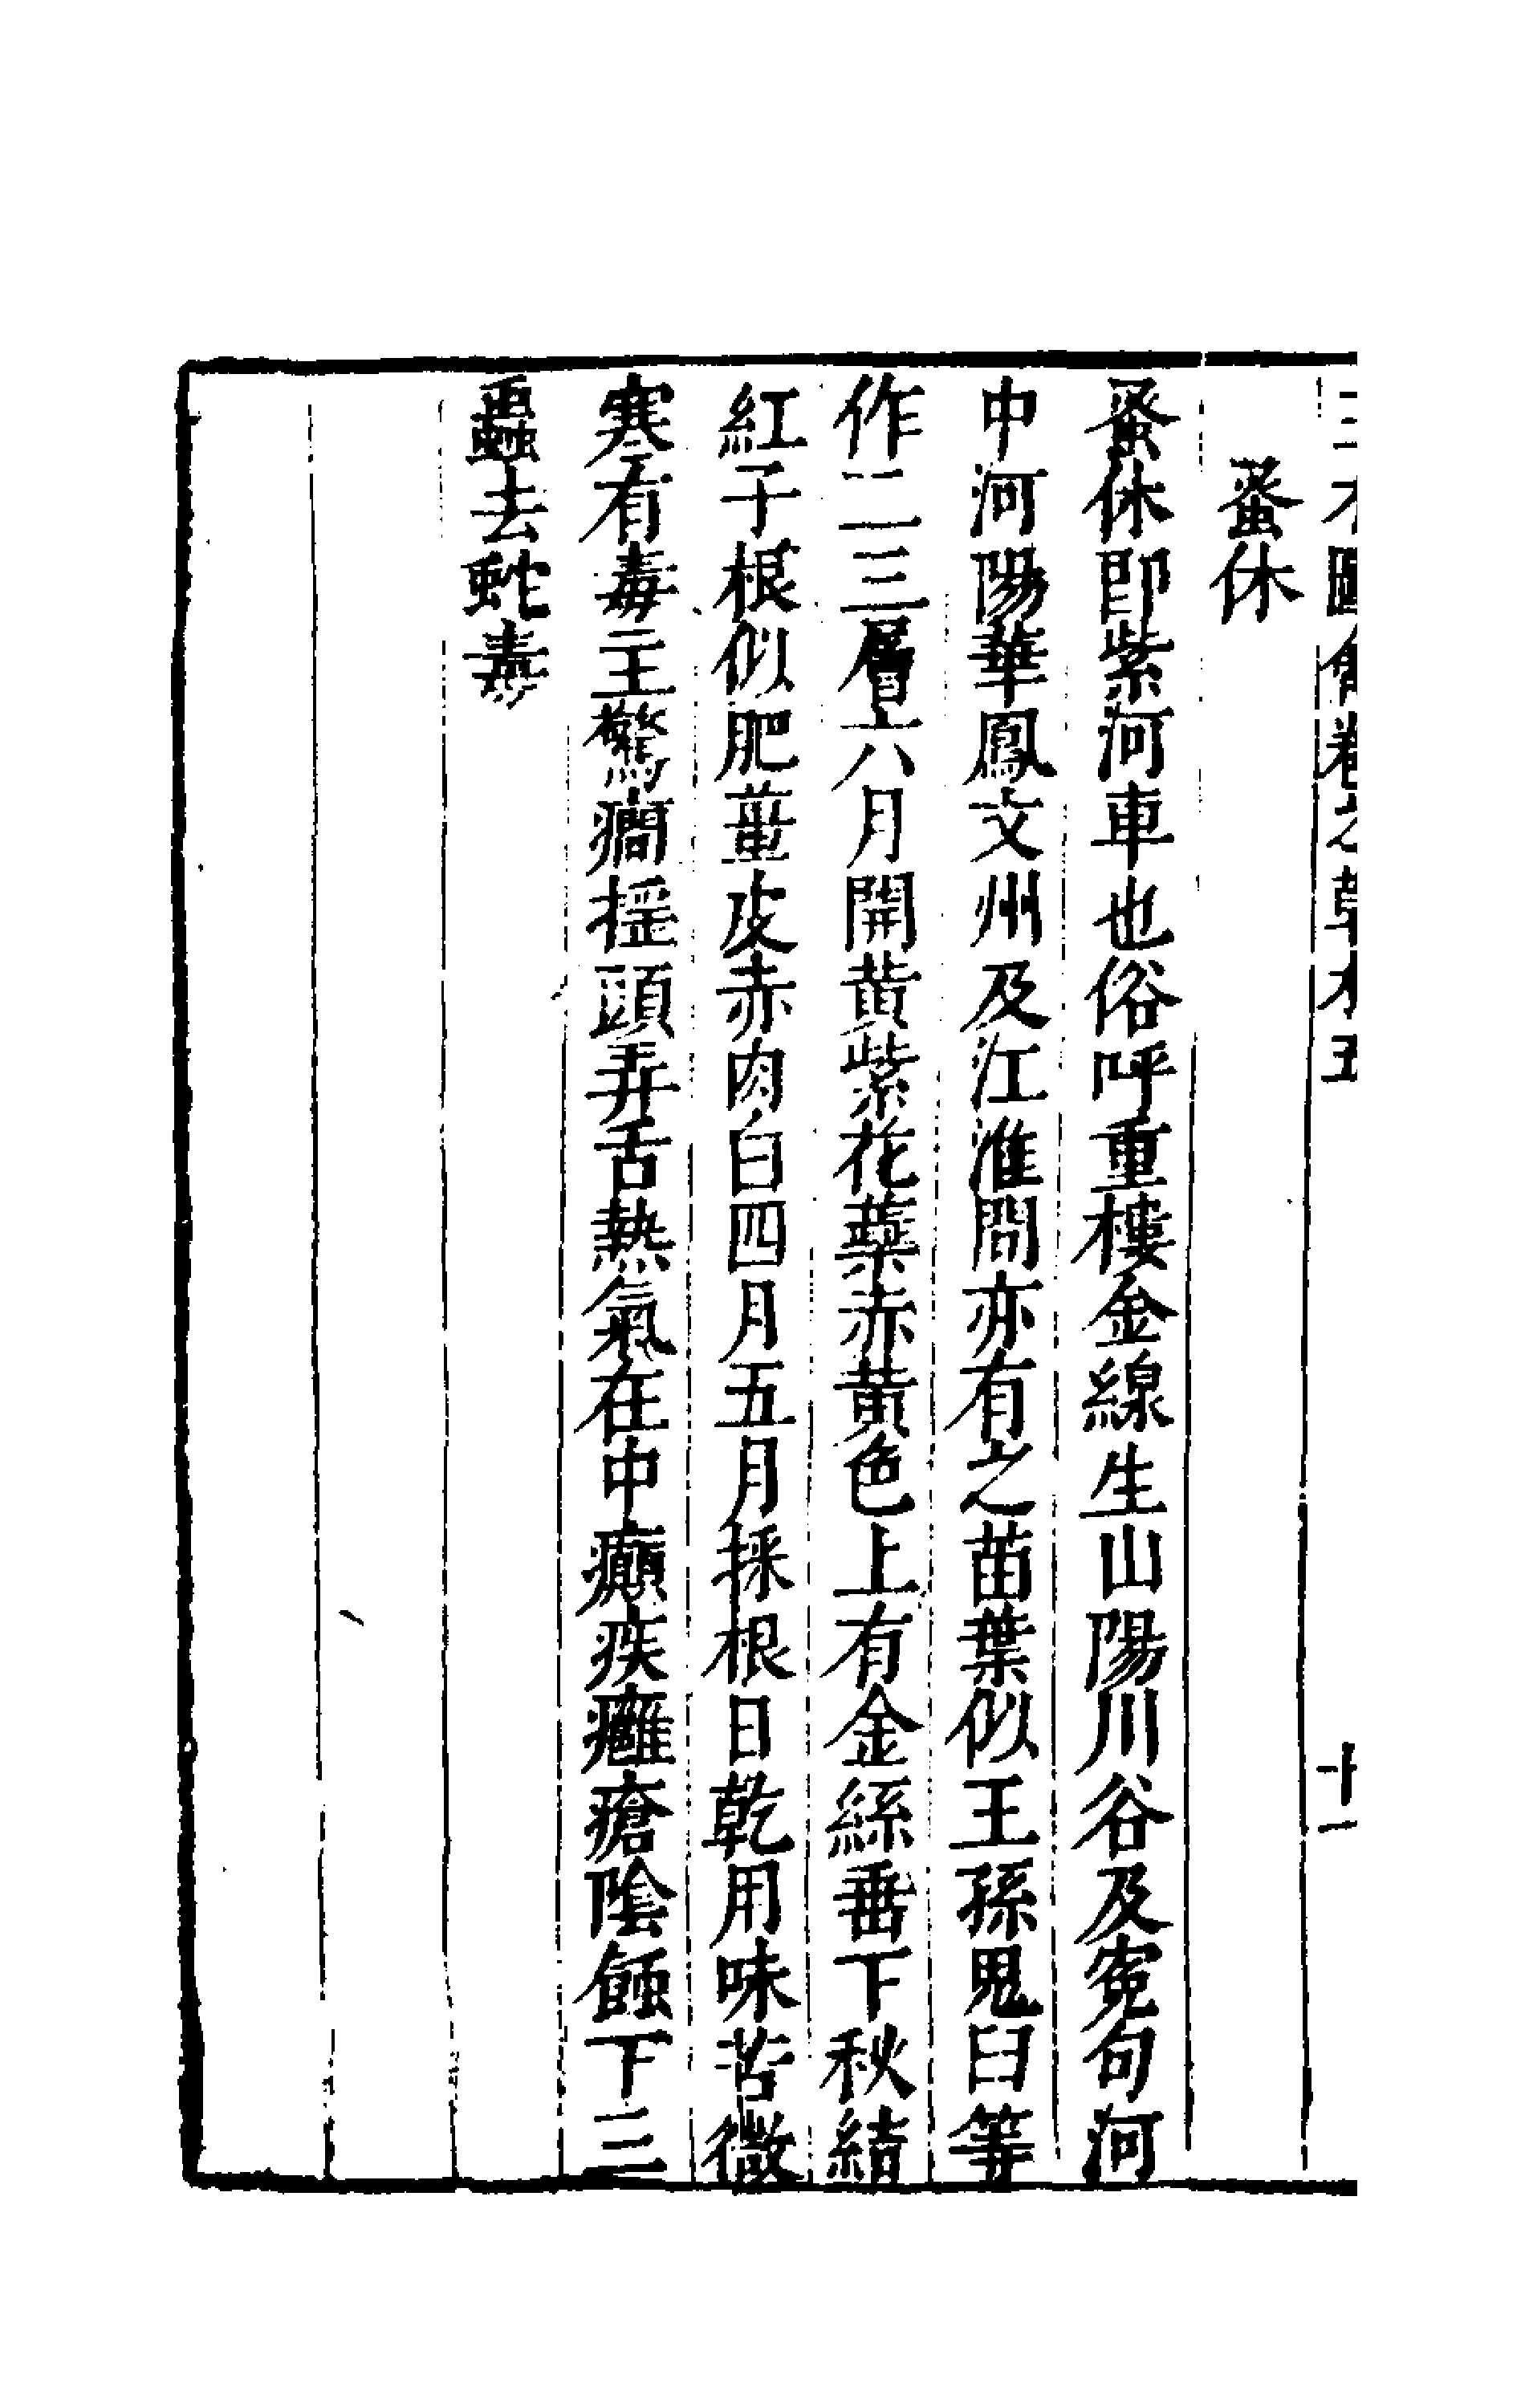 三才圖會卷之草木五 十一
蚤休
蚤休即紫河車也俗呼重樓金線生山陽川谷及寃句河
中河陽華鳳文州及江淮間亦有之苗葉似王孫鬼臼等
作二三層六月開黄紫花蘂赤黄色上有金絲垂下秋結
紅子根似肥薑皮赤肉白四月五月採根日乾用味苦微
寒有毒主驚癇揺頭弄舌熱氣在中癲疾癰瘡陰蝕下三
蟲去蛇毒